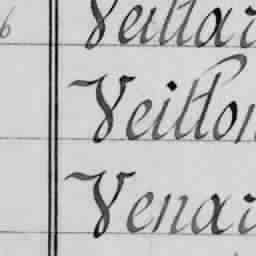 6 Veillar
Veillon
Venar